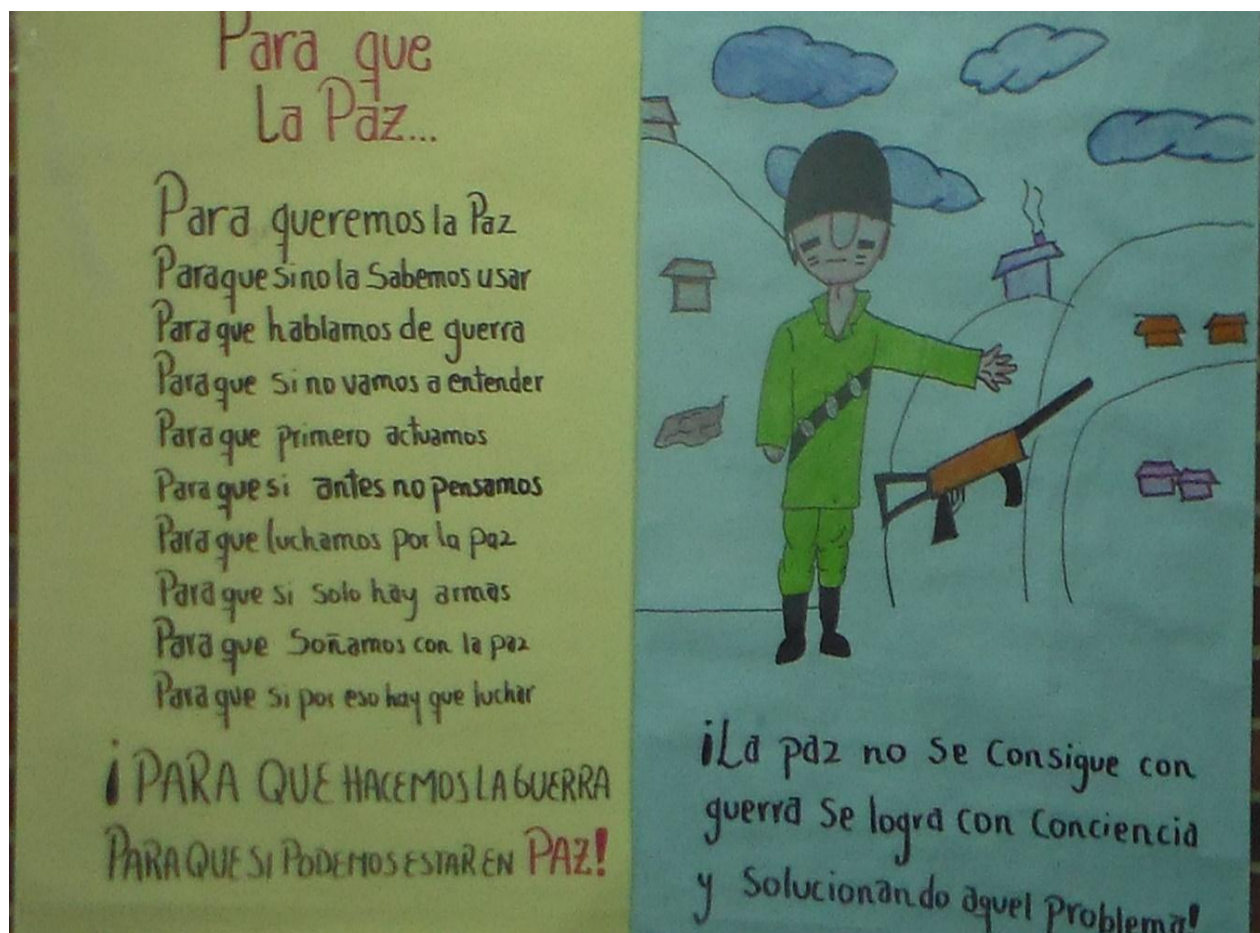 Para que
La Paz...
Para queremos la Paz
Para que si no la Sabemos usar
Para que hablamos de guerra
Para que si no vamos a entender
Para que primero actuamos
Para que si antes no pensamos
Para que luchamos por la paz
Para que si solo hay armas
Para que Soñamos con la paz
Para que si por eso hay que luchar
¡PARA QUE HACEMOS LA GUERRA
PARA QUE SI PODEMOS ESTAR EN PAZ!
¡La paz no se consigue con
guerra se logra con conciencia
y solucionando aquel problema!